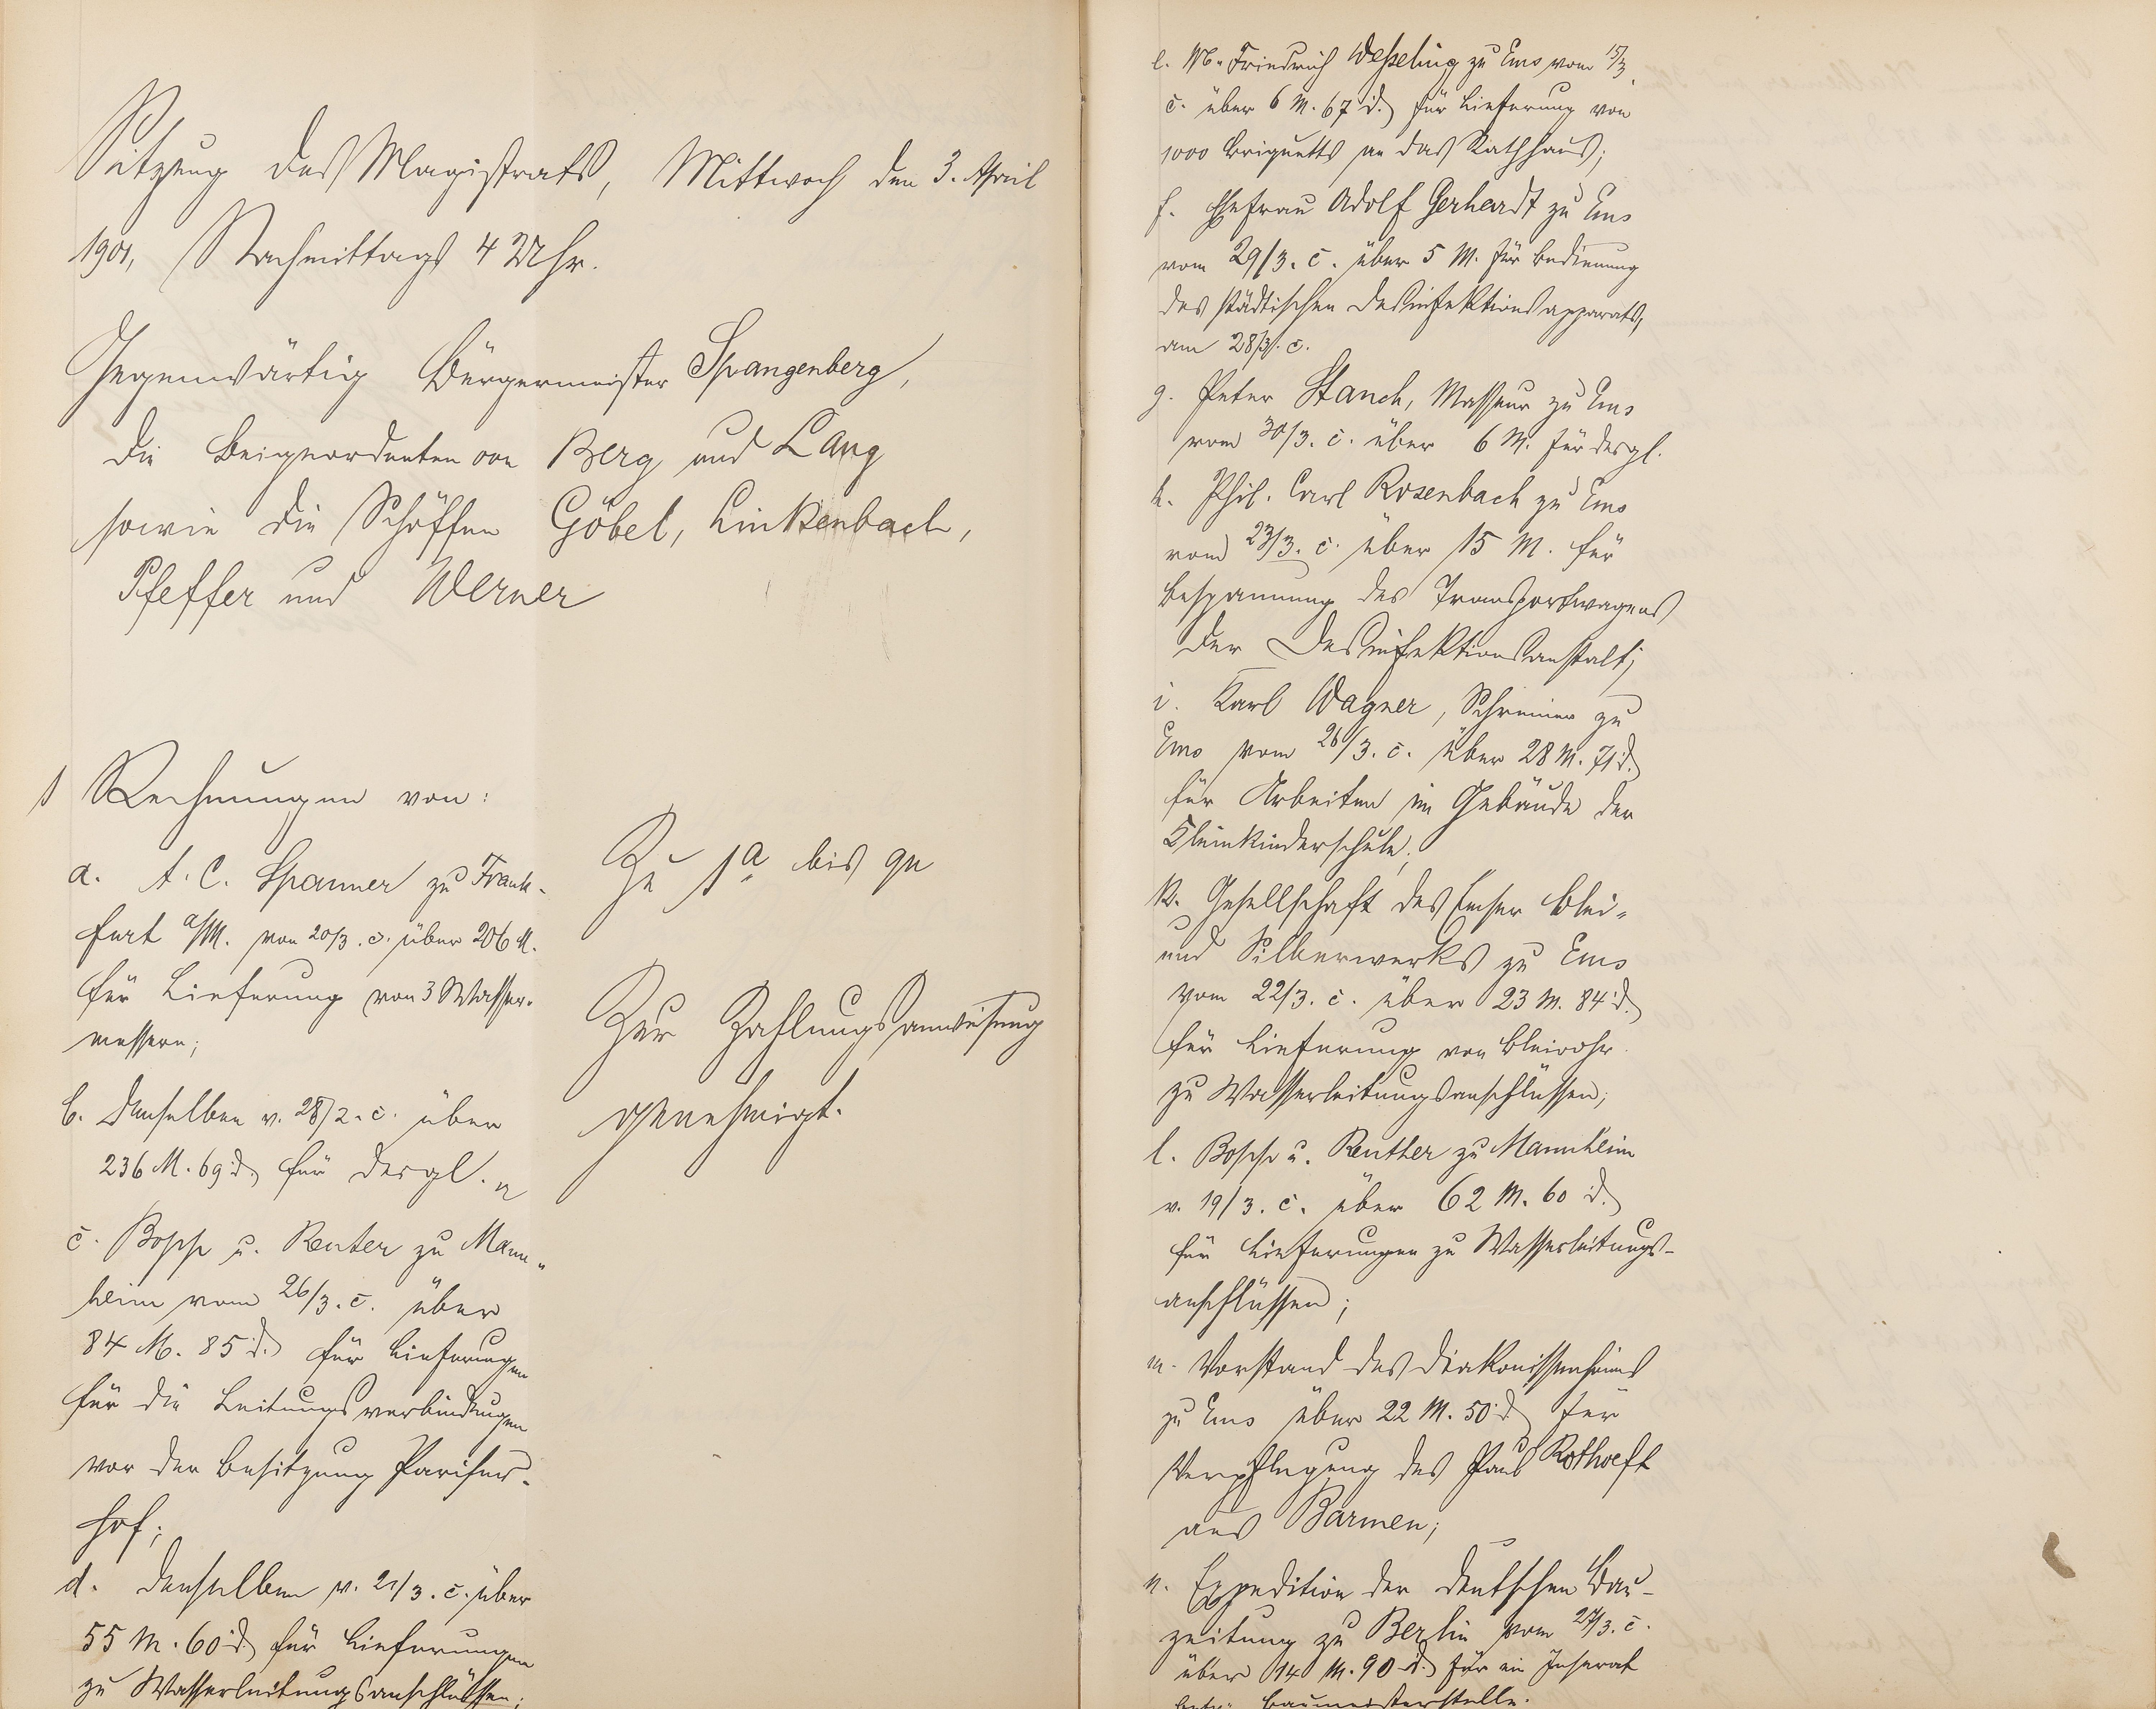 Sitzung des Magistrats, Mittwoch den 3. April
1901, Nachmittags 4 Uhr.
Gegenwärtig Bürgermeister Spangenberg,
die Beigeordneten von Berg und Lang
sowie die Schöffen Göbel, Linkenbach,
Pfeffer und Werner
1 Rechnungen von:
a. A. C. Spanner zu Frank-
furt a/M. von 20/3. c. über 206 M.
für Lieferung von 3 Wasser-
messern;
b. Denselben v. 28/2. c. über
236 M. 69 d. für desgl.
c. Bopp u. Reuter zu Mann-
heim vom 26/3. c. über
84 M. 85 d. für Lieferungen
für die Leitungsverbindungen
vor der Besitzung Pariser-
hof;
d. Denselben v. 21/3. c. über
55 M. 60 d. für Lieferungen
zu Wasserleitungsanschlüssen;
Zu 1a bis
Zur Zahlungsanweisung
genehmigt.
e. Friedrich Wesseling zu Ems vom 15/3.
c. über 6 M. 67 d. für Lieferung von
1000 Briquetts an das Rathhaus;
f. Ehefrau Adolf Gerhardt zu Ems
vom 29/3. c. über 5 M. für Bedienung
des städtischen Desinfektionsapparats,
am 28/3. c.
g. Peter Stanch, Masseur zu Ems
vom 30/3. c. über 6 M. für desgl.
h. Phil. Carl Rosenbach zu Ems
vom 23/3. c. über 15 M. für
Bespannung des Transportwagens
der Desinfektionsanstalt;
i. Karl Wagner, Schreiner zu
Ems vom 26/3. c. über 28 M. 71 d.
für Arbeiten im Gebäude der
Kleinkinderschule;
k. Gesellschaft des Emser Blei-
und Silberwerks zu Ems
vom 22/3. c. über 23 M. 84 d.
für Lieferung von Bleirohr
zu Wasserleitungsanschlüssen;
l. Bopp u. Reuther zu Mannheim
v. 19/3. c. über 62 M. 60 d.
für Lieferungen zu Wasserleitungs-
anschlüssen;
m. Vorstand des Diakonissenheims
zu Ems über 22 M. 50 d. für
Verpflegung des Paul Rothweft
aus Barmen;
n. Expedition der Deutschen Bau-
zeitung zu Berlin vom 27/3. c.
über 14 M. 90 d. für ein Inserat
betr. Baumeisterstelle.